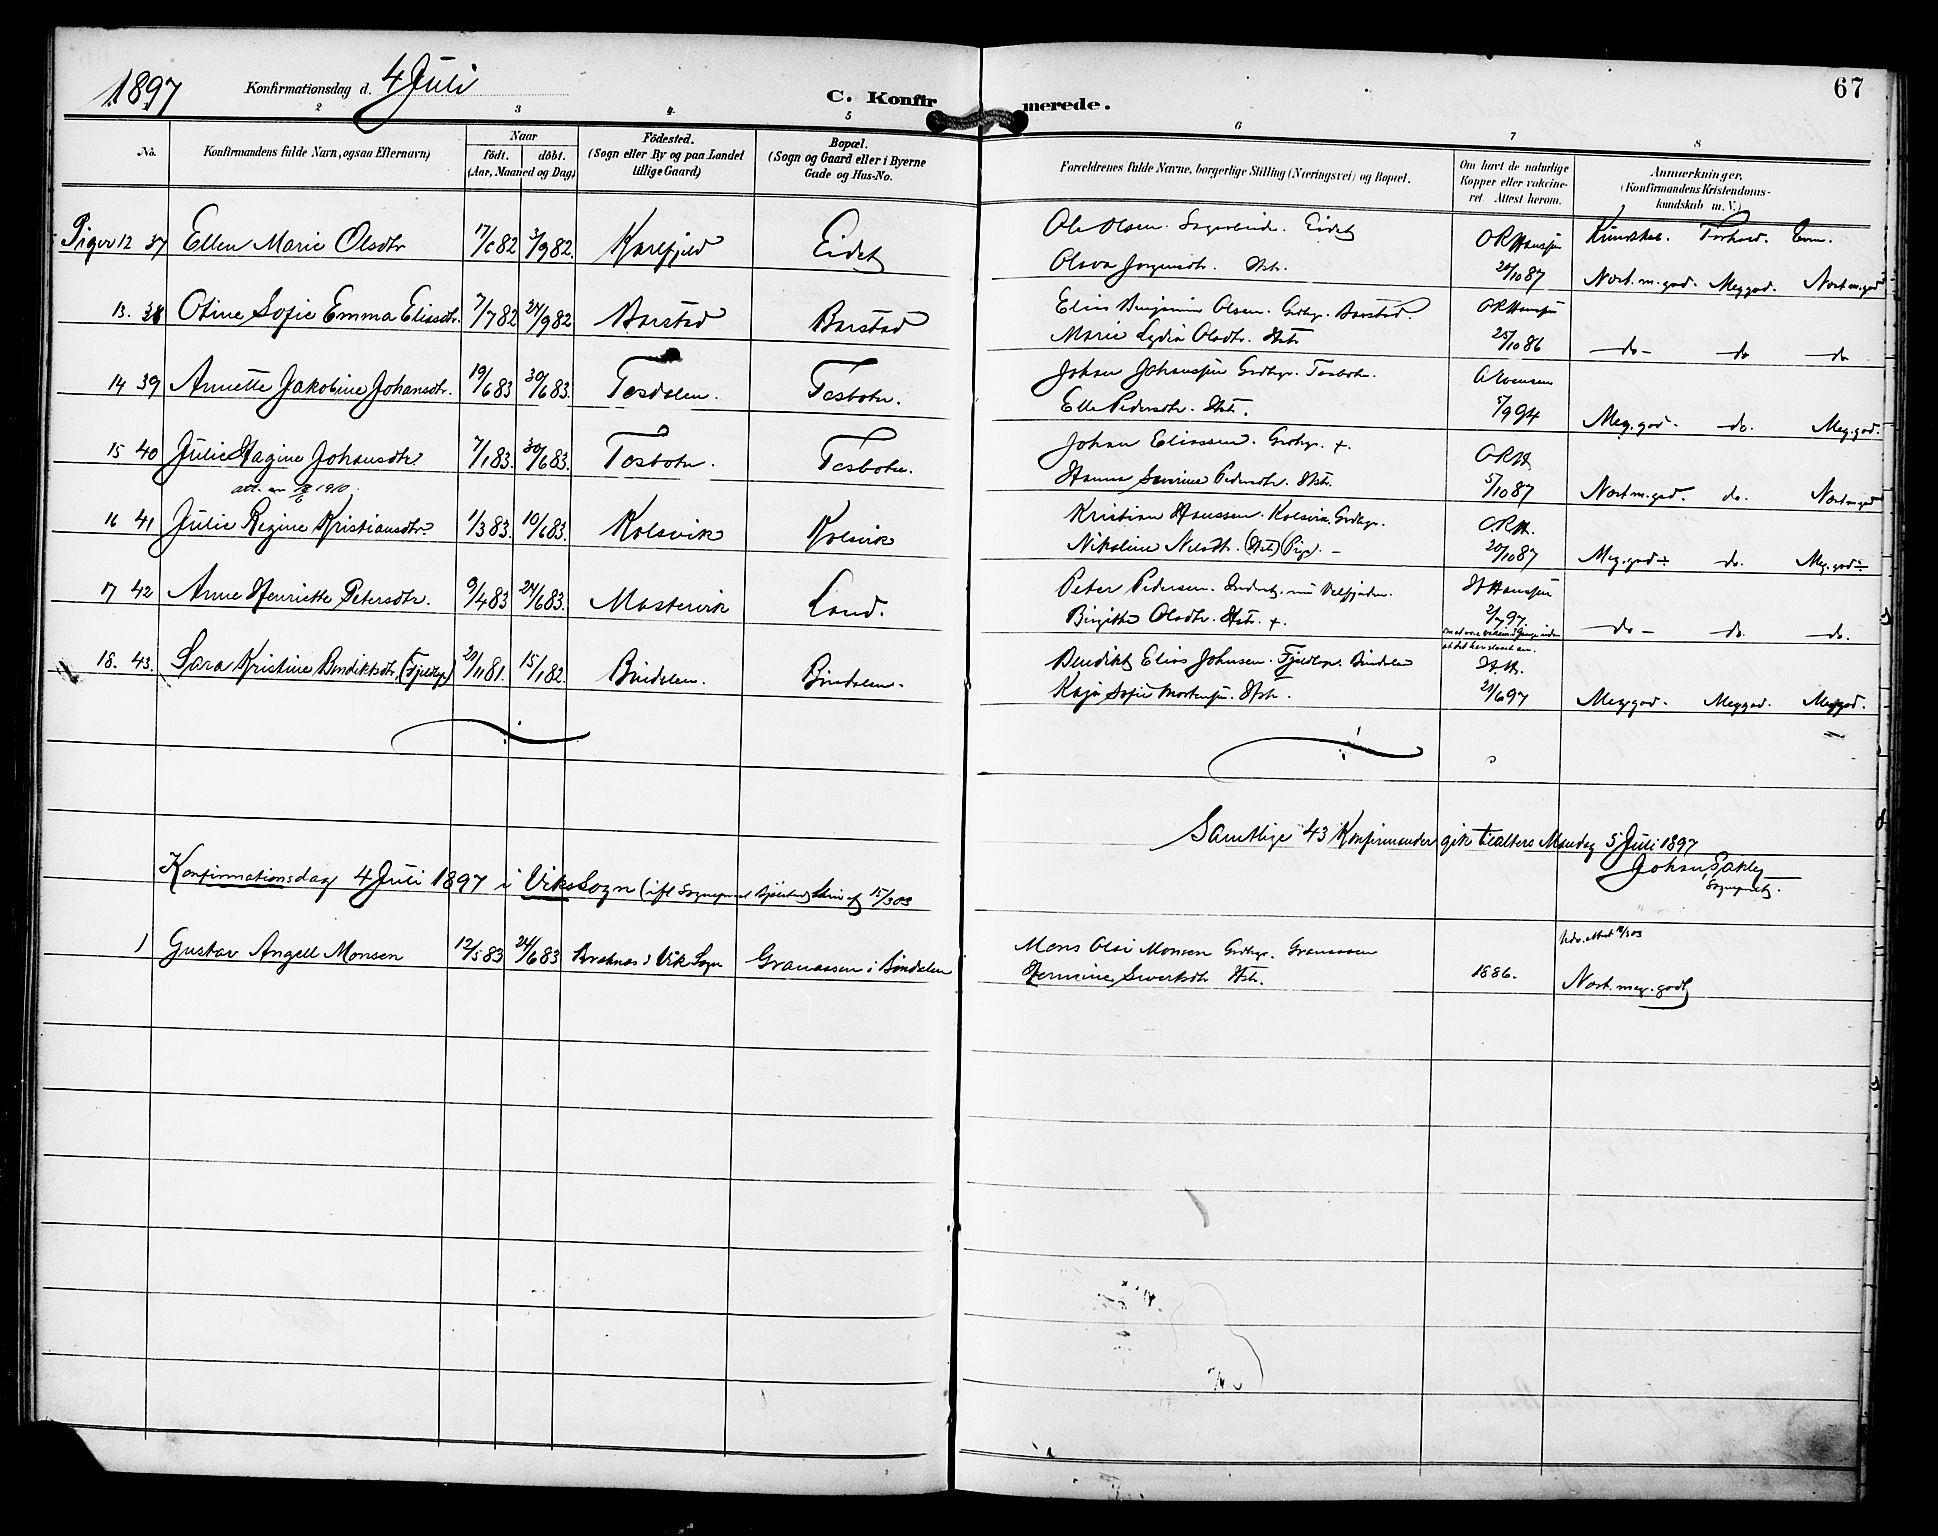 67
1897 Konfirmationsdag d. 4 Juli
C. Konfirmerede.
2 3 4 5 6 7 8
No. Konfirmandens fulde Navn, ogsaa Efternavn) Naar født. døbt. (Aar, Maaned og Dag) Födested. (Sogn eller By og paa Landet tillige Gaard) Bopæl. (Sogn og Gaard eller i Byerne Gade og Hus-No. Forældrenes fulde Navne, borgerlige Stilling (Næringsvei) og Bopæl. Om havt de naturlige Kopper eller vakcineret. Attest herom. Anmærkninger, (Konfirmandens Kristendomskundskab m. V.)
Piger 12 37 Ellen Marie Olsdtr 17/6 82 3/9 82. Karlfjeld Eidet Ole Olsen. Eidet O R Hanssen Kundskab. Forhold.
Olava Jørgensdtr. Hstr. 10 87 Nost. m. god. Meg god. Nost m. god
13. 38 Otine Sofie Emma Eliasdtr. 7/7 82 24/9 82 Barstad Barstad Elias Benjamin Olsen. Grdbgr. Barstad. O R Hanssen
Marie Lydia Olsdtr. Hstr 25/10 86 do do do
14 39 Annette Jakobine Johansdtr. 19/6 83 30/6 83. Tosdalen. Tosbotn. Johan Johanssen Grdbgr. Tosbotn.
Elle Pedersdtr. Hstr. 5/9 94 Meg. god. do. Meg. god.
15 40 Julie Hagine Johansdtr 7/1 83. 30/6 83. Tosbotn. Tosbotn. Johan Eliassen. Grdbgr. +. O R H.
att. 1910. Hanna Sevrine Pedersdtr. Hstr. 5/10 87 Nost m. god. do. Nost m god
16 41 Julie Regine Kristiansdtr. 1/3 83 10/6 83. Kolsvik Kolsvik Kristian Hanssen. Kolsvik Grdbgr. O. R. H.
Nikoline Nilsdtr. (Hstr) Pige. 20/10 87 Meg. god÷ do. Meg. god÷
17 42 Anne Henriette Petersdtr. 9/4 83 24/6 83. Mastervik Lande. Peter Pedersen. Inderst, nu Velfjorden. H Hanssen
Birgitha Olsdtr. Hstr. +. 2/7 97. do do. do.
18. 43. Sara Kristine Bendiktsdtr. (Fjeldbgr) 20/11 81. 15/1 82. Bindalen. Bindalen. Bendikt Elias Johnsen. Fjeldbgr. Bindalen H. H.
Kaja Sofie Mortensen. Hstr. 21/6 97 Meg god. Meg god. Meg god.
Samtlige 43 Konfirmander gik tilalters Mandag 5 Juli 1897
Johan Sakley
Sogneprest
Konfirmationsdag 4 Juli 1897 i Viks Sogn (ifl Sogneprest Skriv af 15/3 03
1 Gustav Angell Monsen 12/5 83 24/6 83 i Vik Sogn Granaasen i Bindalen Mons Olai Monsen Grdbgr. Granaasen
Hermine Sivertsdtr Hstr. 1886. Nost. meg. godt